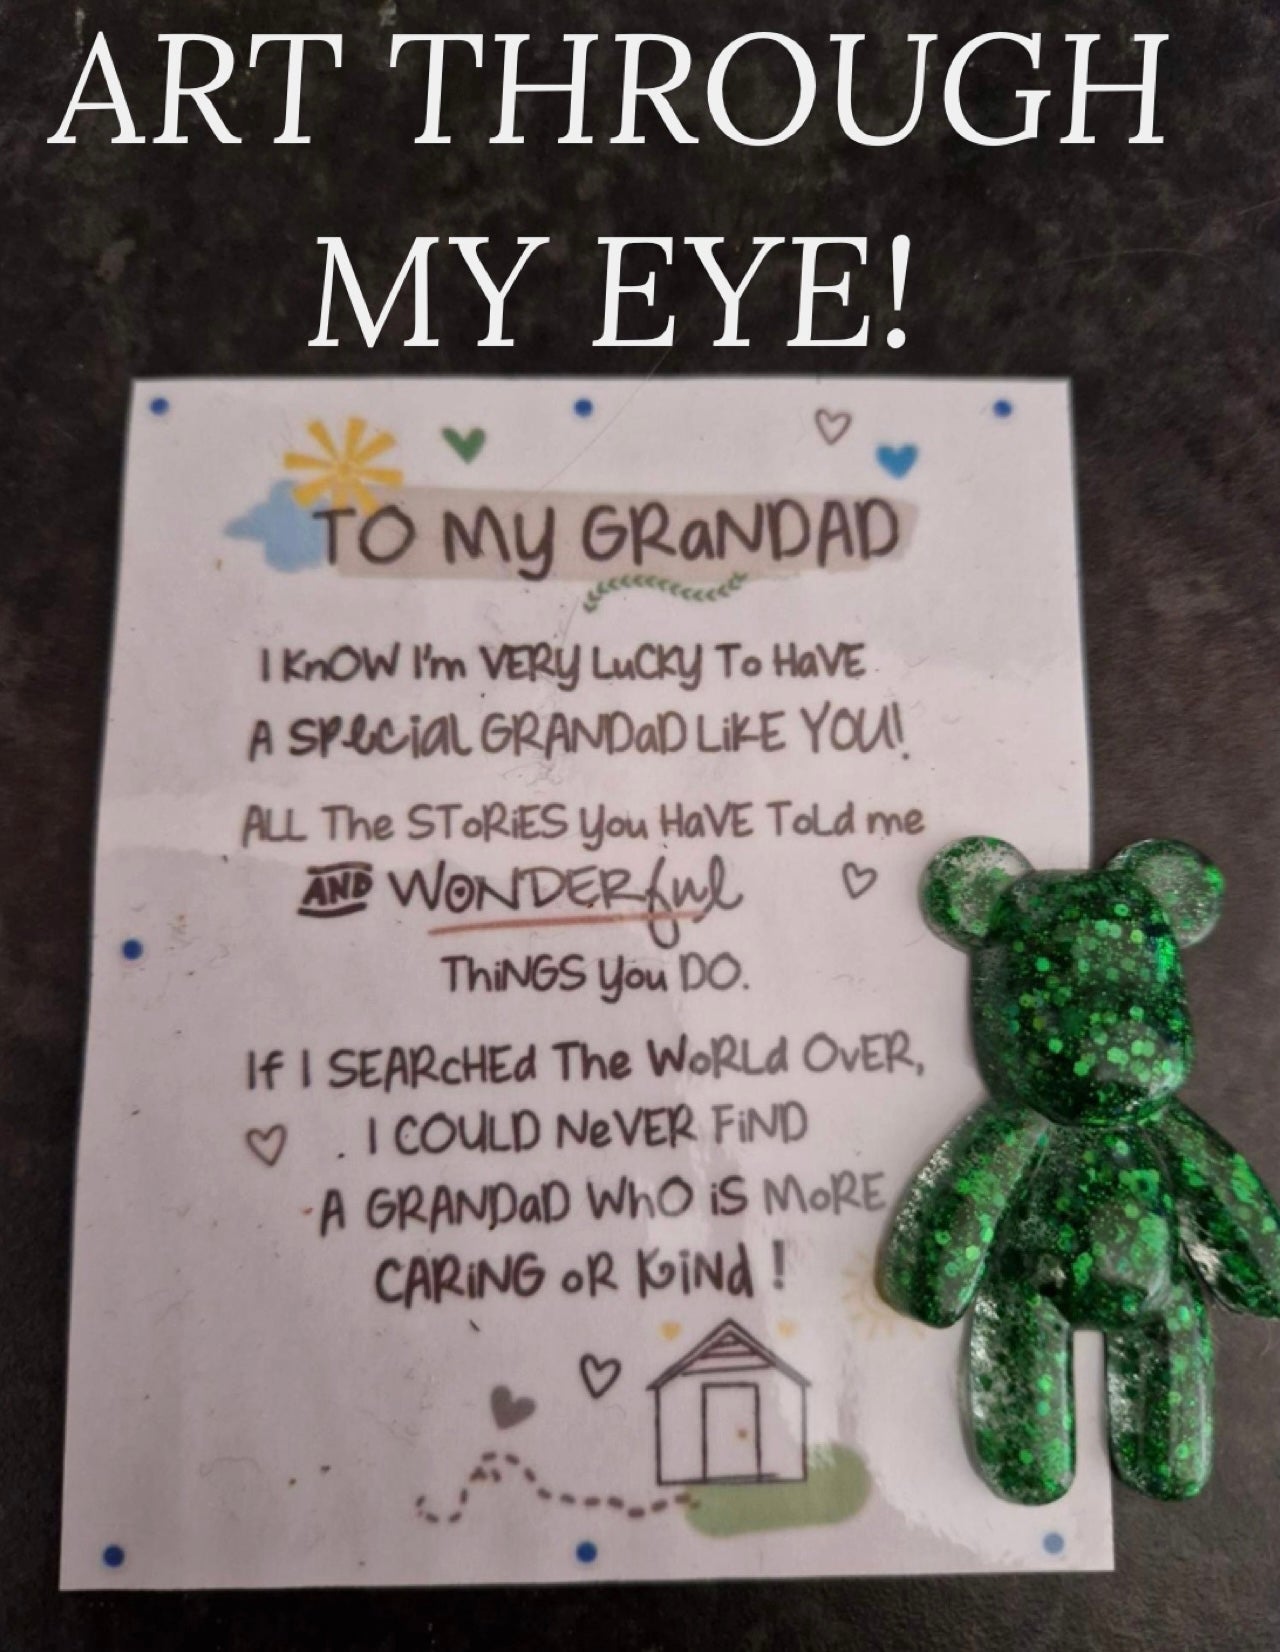 ART THROUGH
MY EYE!
TO My GRaNDAD
I KnOW I'm VERy LuCKy To HaVE
A SPeCiaL GRANDaD LiKE YOU!
ALL The SToRiES you HaVE ToLd me
AND WONDERful
ThiNGS you DO.
If I SEARcHEd The WoRLd OvER,
I COULD NeVER FiND
A GRANDaD WhO iS MoRE
CARiNG oR KiNd !